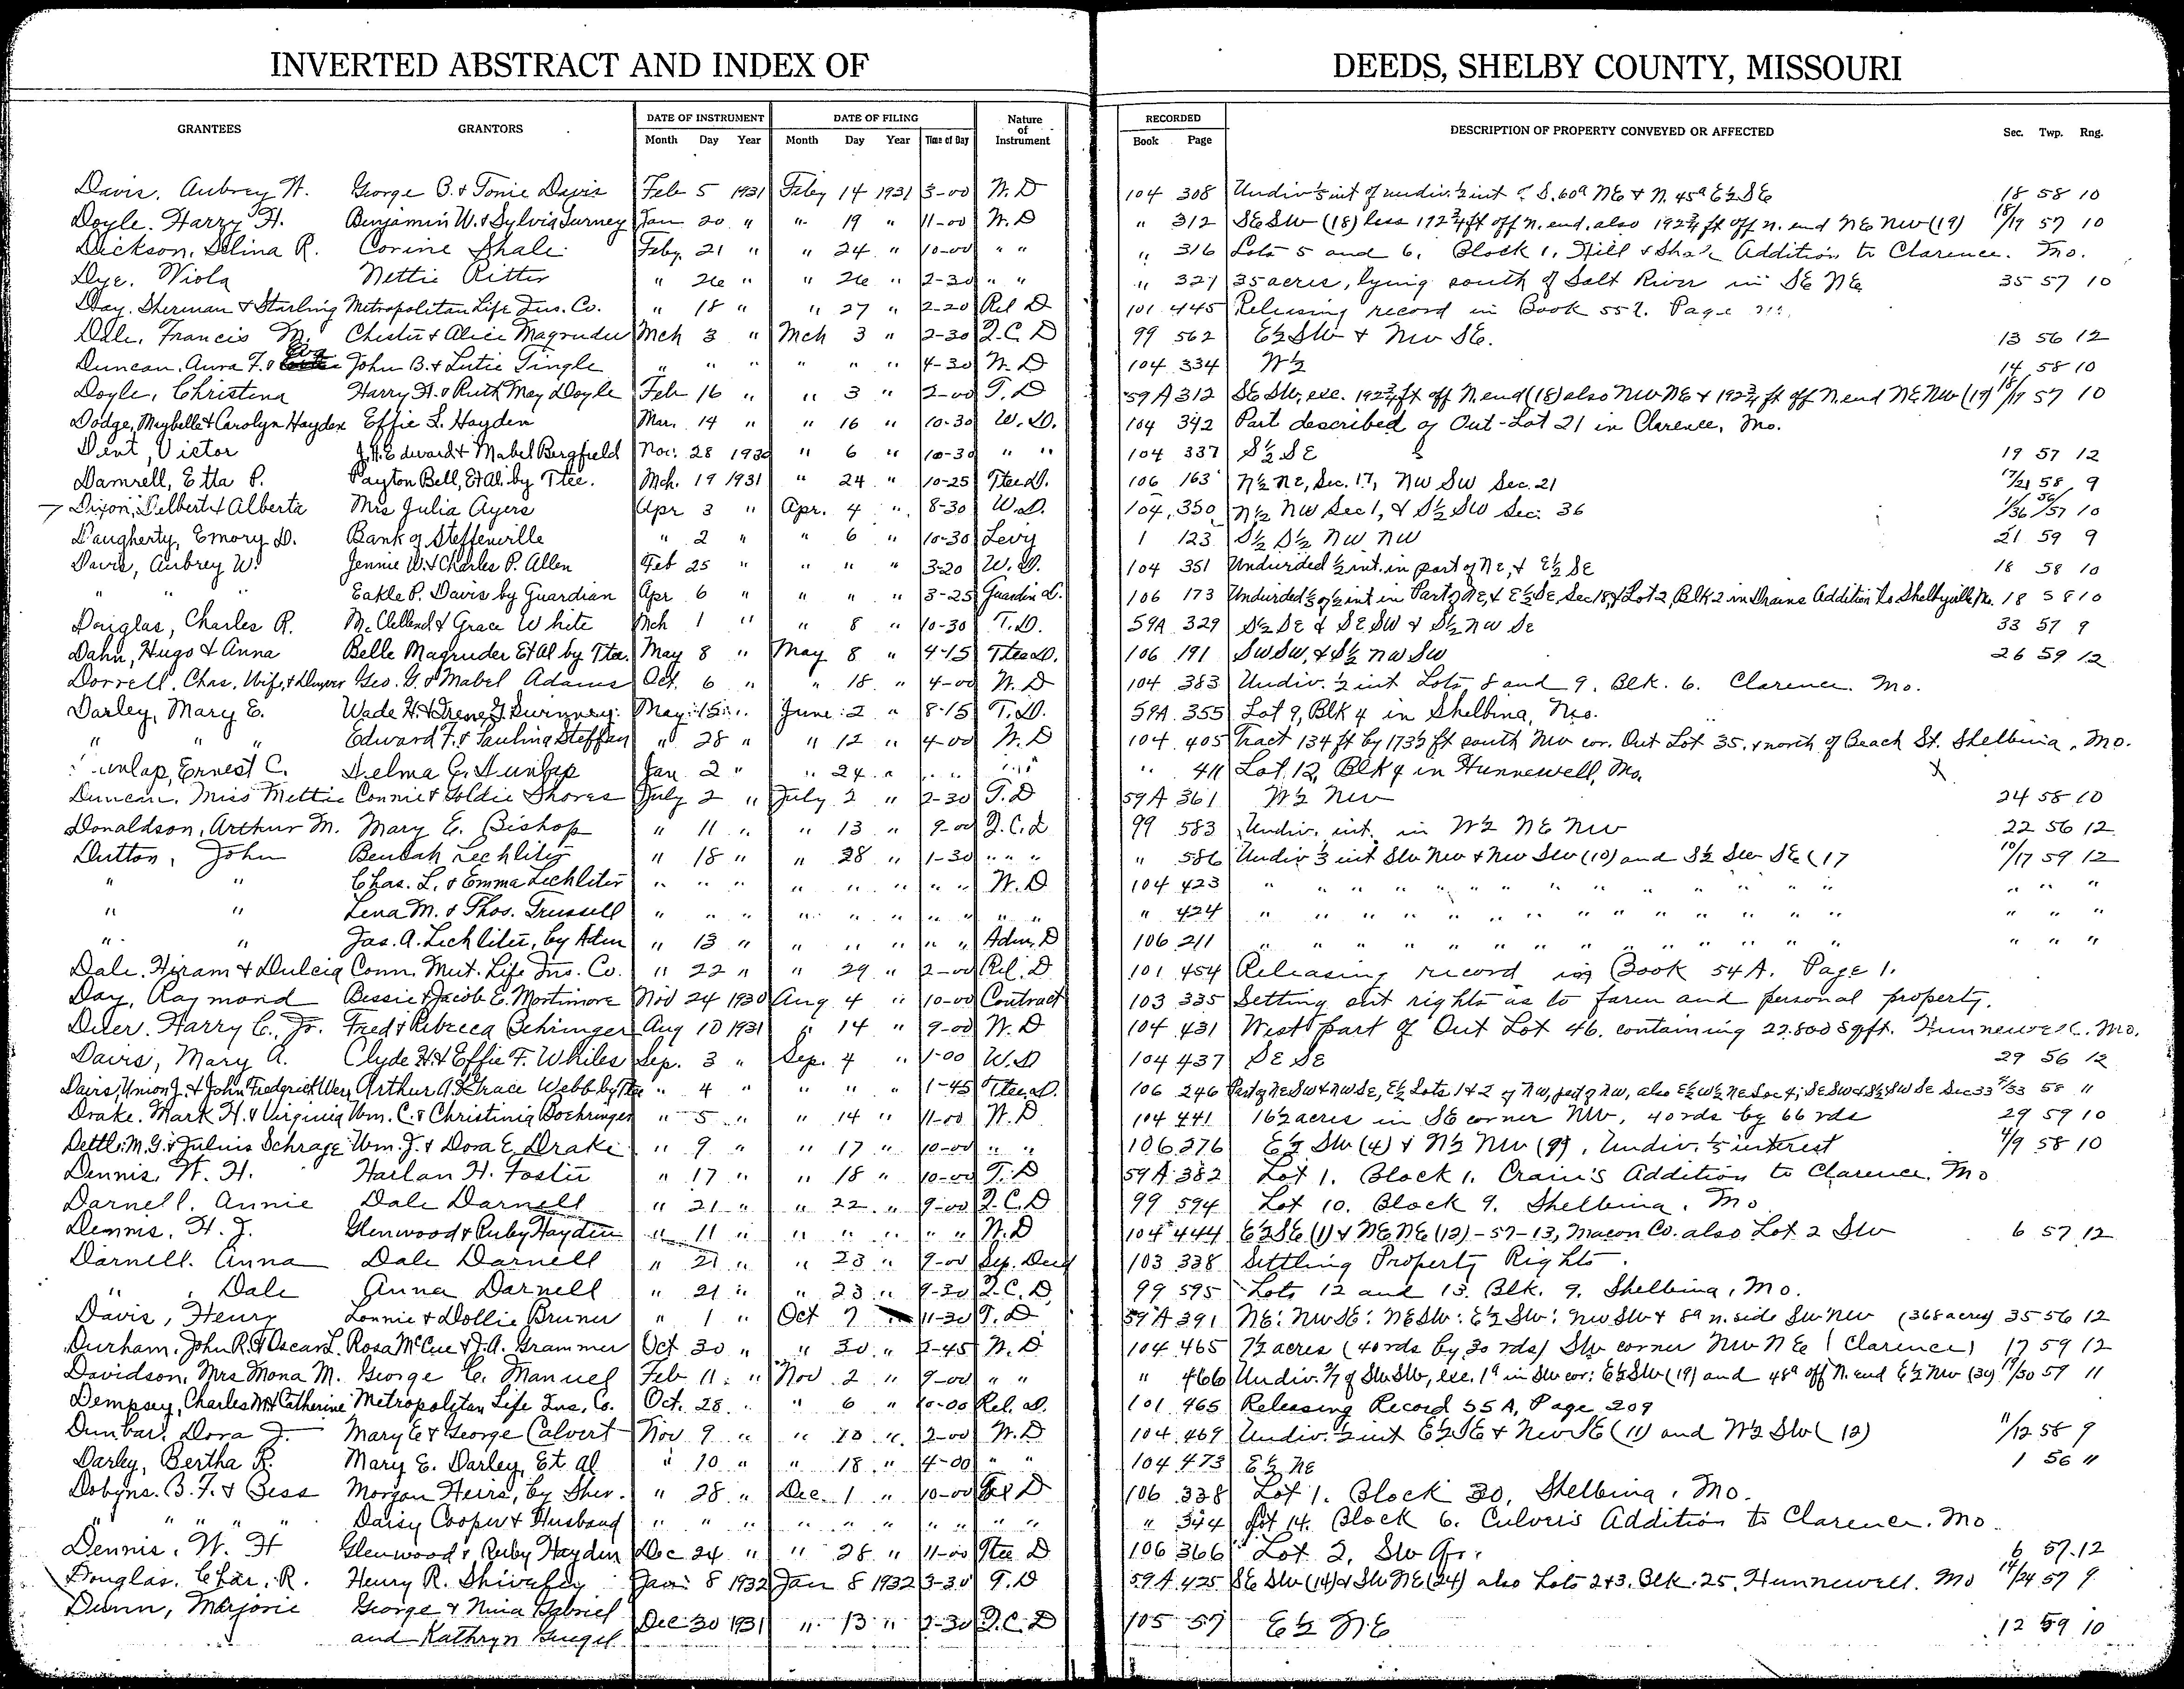 INVERTED ABSTRACT AND INDEX OF DEEDS, SHELBY COUNTY, MISSOURI
GRANTEES GRANTORS DATE OF INSTRUMENT DATE OF FILING Nature of Instrument RECORDED DESCRIPTION OF PROPERTY CONVEYED OR AFFECTED Sec. Twp. Rng.
Month Day Year Month Day Year Time of Day Book Page
Davis, Aubrey W. George B. & Tonie Davis Feb 5 1931 Feby 14 1931 3-00 W. D 104 308 Undiv ½ int of undiv. ½ int S. 60a NE & N. 45a E½ SE 18 58 10
Doyle, Harry H. Benjamin W. & Sylvia Turney Jan 20 " " 19 " 11-00 W. D " 312 SE SW (18) less 192¾ ft off N. end, also 192¾ ft off n. end NE NW (19) 18/19 57 10
Dickson, Selina R. Corine Shale Feby. 21 " " 24 " 10-00 " " " 316 Lots 5 and 6, Block 1, Hill & Shale Addition to Clarence, Mo.
Dye, Viola Nettie Ritter " 26 " " 26 " 2-30 " " " 321 35 acres, lying south of Salt River in SE NE 35 57 10
Day, Sherman & Starling Metropolitan Life Ins. Co. " 18 " " 27 " 2-20 Rel D 101 445 Releasing record in Book 552, Page
Dale, Francis M. Chester & Alice Magruder Mch 3 " Mch 3 " 2-30 Q. C. D 99 562 E½ SW & NW SE. 13 56 12
Duncan, Anna F. & Eva John B. & Lutie Tingle " " " " " " 4-30 W. D 104 334 W½ 14 58 10
Doyle, Christina Harry H. & Ruth May Doyle Feb 16 " " 3 " 2-00 T. D 59A 312 SE SW, exc. 192¾ ft off N. end (18) also NW NE & 192¾ ft off N. end NE NW (19) 18/19 57 10
Dodge, Maybelle & Carolyn Hayden Effie L. Hayden Mar. 14 " " 16 " 10-30 W. D. 104 342 Part described of Out-Lot 21 in Clarence, Mo.
Dent, Victor J. H. Edward & Mabel Bergfield Nov. 28 1930 " 6 " 10-30 " " 104 337 S½ SE 19 57 12
Damrell, Etta P. Payton Bell, Et Al. by Ttee. Mch. 19 1931 " 24 " 10-25 Ttee D. 106 163 N½ NE, Sec. 17, NW SW Sec. 21 17/21 58 9
Dixon, Delbert & Alberta Mrs Julia Ayers Apr 3 " Apr. 4 " 8-30 W. D. 104 350 N½ NW Sec 1, & S½ SW Sec. 36 1/36 56/57 10
Daugherty, Emory D. Bank of Steffenville " 2 " " 6 " 10-30 Levy 1 123 S½ S½ NW NW 21 59 9
Davis, Aubrey W. Jennie W. & Charles P. Allen Feb 25 " " " " 3-20 W. D. 104 351 Undivided ½ int. in part of NE, & E½ SE 18 58 10
" " " Eakle P. Davis by Guardian Apr 6 " " " " 3-25 Guardian D. 106 173 Undivided ½ of ½ int in Part of NE & E½ SE, Sec 18, & Lot 2, Blk 2 in Drains Addition to Shelbyville, Mo. 18 58 10
Douglas, Charles R. McClelland & Grace White Mch 1 " " 8 " 10-30 T. D. 59A 329 S½ SE & SE SW & S½ NW SE 33 57 9
Dahn, Hugo & Anna Belle Magruder Et Al by Ttee. May 8 " May 8 " 4-15 Ttee D. 106 191 SW SW, & S½ NW SW 26 59 12
Dorrell, Chas, Wife, & Denver Geo. G. & Mabel Adams Oct. 6 " " 18 " 4-00 W. D 104 383 Undiv. ½ int Lots 8 and 9, Blk. 6. Clarence, Mo.
Darley, Mary E. Wade H. & Irene J. Swinney May 15 " June 2 " 8-15 T. D. 59A 355 Lot 9, Blk 4 in Shelbina, Mo.
" " " Edward F. & Paulina Steffan " 28 " " 12 " 4-00 W. D 104 405 Tract 134 ft by 173½ ft south NW cor. Out Lot 35, & north of Beach St. Shelbina, Mo.
Dunlap, Ernest C. Selma G. Dunlap Jan 2 " " 24 " " " " " " 411 Lot 12, Blk 4 in Hunnewell, Mo. X
Duncan, Miss Mettie Connie & Goldie Shores July 2 " July 2 " 2-30 T. D 59A 361 W½ NW 24 58 10
Donaldson, Arthur M. Mary E. Bishop " 11 " " 13 " 9-00 Q. C. D 99 583 Undiv. int. in W½ NE NW 22 56 12
Dutton, John Beulah Lechliter " 18 " " 28 " 1-30 " " " " 586 Undiv ⅓ int SW NW & NW SW (10) and S½ SW SE (17 10/17 59 12
" " Chas. L. & Emma Lechliter " " " " " " " " W. D 104 423 " " " " " " " " " " " " " "
" " Lena M. & Thos. Trussell " " " " " " " " " " " 424 " " " " " " " " " " " " " "
" " Jas. A. Lechliter, by Adm " 13 " " " " " " Adm. D 106 211 " " " " " " " " " " " " " "
Dale, Hiram & Dulcia Conn. Mut. Life Ins. Co. " 22 " " 29 " 2-00 Rel. D 101 454 Releasing record in Book 54A. Page 1.
Day, Raymond Bessie & Jacob E. Mortimore Nov 24 1930 Aug 4 " 10-00 Contract 103 335 Setting out rights as to farm and personal property.
Diler, Harry C., Jr. Fred & Rebecca Behringer Aug 10 1931 " 14 " 9-00 W. D 104 431 West part of Out Lot 46, containing 22.800 Sq ft. Hunnewell, Mo.
Davis, Mary A. Clyde H. & Effie F. Whiles Sep. 3 " Sep. 4 " 1-00 W. D 104 437 SE SE 29 56 12
Davis, Union J. & John Frederick Uerz Arthur A. & Grace Webb by Ttee " 4 " " " " 1-45 Ttee D. 106 246 Part of NE SW & NW SE, E½ Lots 1 & 2 of NW, part of NW, also E½ W½ NE Sec 4; SE SW & S½ SW SE Sec 33 4/33 58 11
Drake, Mark H. & Virginia Wm. C. & Christinia Boehringer " 5 " " 14 " 11-00 W. D 104 441 16½ acres in SE corner NW, 40 rds by 66 rds 29 59 10
Dettli, M. G. & Julius Schrage Wm. J. & Dora E. Drake " 9 " " 17 " 10-00 " " 106 276 E½ SW (4) & N½ NW (9), Undiv. ⅕ interest 4/9 58 10
Dennis, W. H. Harlan H. Foster " 17 " " 18 " 10-00 T. D 59A 382 Lot 1, Block 1, Crain's Addition to Clarence, Mo
Darnell, Annie Dale Darnell " 21 " " 22 " 9-00 Q. C. D 99 594 Lot 10, Block 9, Shelbina, Mo
Dennis, H. J. Glenwood & Ruby Hayden " 11 " " " " " " W. D 104 444 E½ SE (1) & NE NE (12)-57-13, Macon Co. also Lot 2 SW 6 57 12
Darnell, Anna Dale Darnell " 21 " " 23 " 9-00 Sep. Deed 103 338 Settling Property Rights.
" , Dale Anna Darnell " 21 " " 23 " 9-30 Q. C. D 99 595 Lots 12 and 13, Blk. 9, Shelbina, Mo.
Davis, Henry Lonnie & Dollie Bruner " 1 " Oct 7 " 11-30 T. D 59A 391 NE: NW SE: NE SW: E½ SW: NW SW & 8a n. side SW NW (368 acres) 35 56 12
Durham, John R. & Oscar L. Rosa McCue & J. A. Grammer Oct 30 " " 30 " 2-45 W. D 104 465 7½ acres (40 rds by 30 rds) SW corner NW NE (Clarence) 17 59 12
Davidson, Mrs Mona M. George C. Manuel Feb 11 " Nov 2 " 9-00 " " " 466 Undiv. 2/7 of SW SW, exc. 1a in SW cor: E½ SW (19) and 48a off N. end E½ NW (30) 19/30 59 11
Dempsey, Charles W. & Catherine Metropolitan Life Ins. Co. Oct. 28 " " 6 " 10-00 Rel. D. 101 465 Releasing Record 55A, Page 209
Dunbar, Dora J. Mary E & George Calvert Nov 9 " " 10 " 2-00 W. D 104 469 Undiv. ½ int E½ SE & NW SE (11) and W½ SW (12) 11/12 58 9
Darley, Bertha R. Mary E. Darley, Et al " 10 " " 18 " 4-00 " " 104 473 E½ NE 1 56 11
Dobyns, B. F. & Bess Morgan Heirs, by Sher. " 28 " Dec. 1 " 10-00 D 106 338 Lot 1, Block 30, Shelbina, Mo.
" " " " Daisy Cooper & Husband " " " " " " " " " " " 344 Lot 14, Block 6, Culver's Addition to Clarence, Mo.
Dennis, W. H Glenwood & Ruby Hayden Dec 24 " " 28 " 11-00 Ttee D 106 366 Lot 2, SW Qr. 6 57 12
Douglas, Char. R. Henry R. Shively Jan 8 1932 Jan 8 1932 3-30 T. D 59A 425 SE SW (14) & SW NE (24) also Lots 2 & 3, Blk. 25, Hunnewell, Mo 14/24 57 9
Dunn, Marjorie George & Nina Gabriel Dec 30 1931 " 13 " 2-30 Q. C. D 105 57 E½ NE 12 59 10
and Kathryn